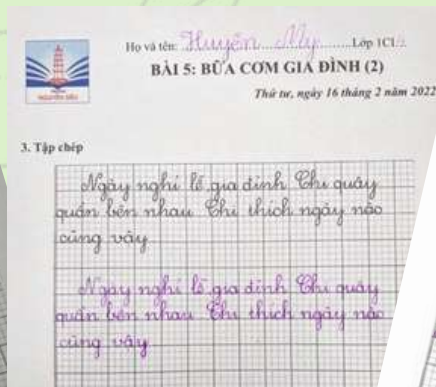 NGUYỄN SIÊU
Họ và tên: Huyền My Lớp 1C1
BÀI 5: BỮA CƠM GIA ĐÌNH (2)
Thứ tư, ngày 16 tháng 2 năm 2022
3. Tập chép
Ngày nghỉ lễ, gia đình Chi quây
quần bên nhau Chi thích ngày nào
cũng vậy
Ngày nghỉ lễ, gia đình Chi quây
quần bên nhau Chi thích ngày nào
cũng vậy